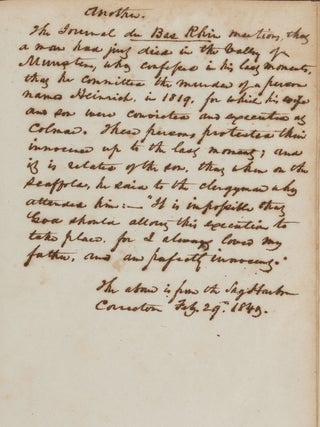 Another.
The Journal du Bas Rhin mentions, that
a man had just died in the Valley of
Munster, who confessed in his last moments,
that he committed the murder of a person
named Heinrich, in 1819, for which his wife
and son were convicted and executed at
Colmar. These persons, protested their
innocence up to the last moment; and
it is related of the son, that when on the
scaffold, he said to the clergyman who
attended him:— "It is impossible that
God should allow this execution to
take place, for I always loved my
father, and am perfectly innocent."
The above is from the Sag Harbor
Corrector Feby. 29th. 1849.